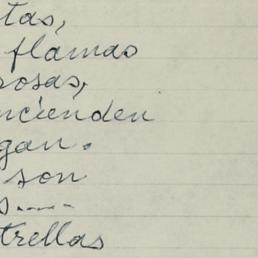 tas,
flamas
rosas,
ncienden
gan.
son
s.....
trellas